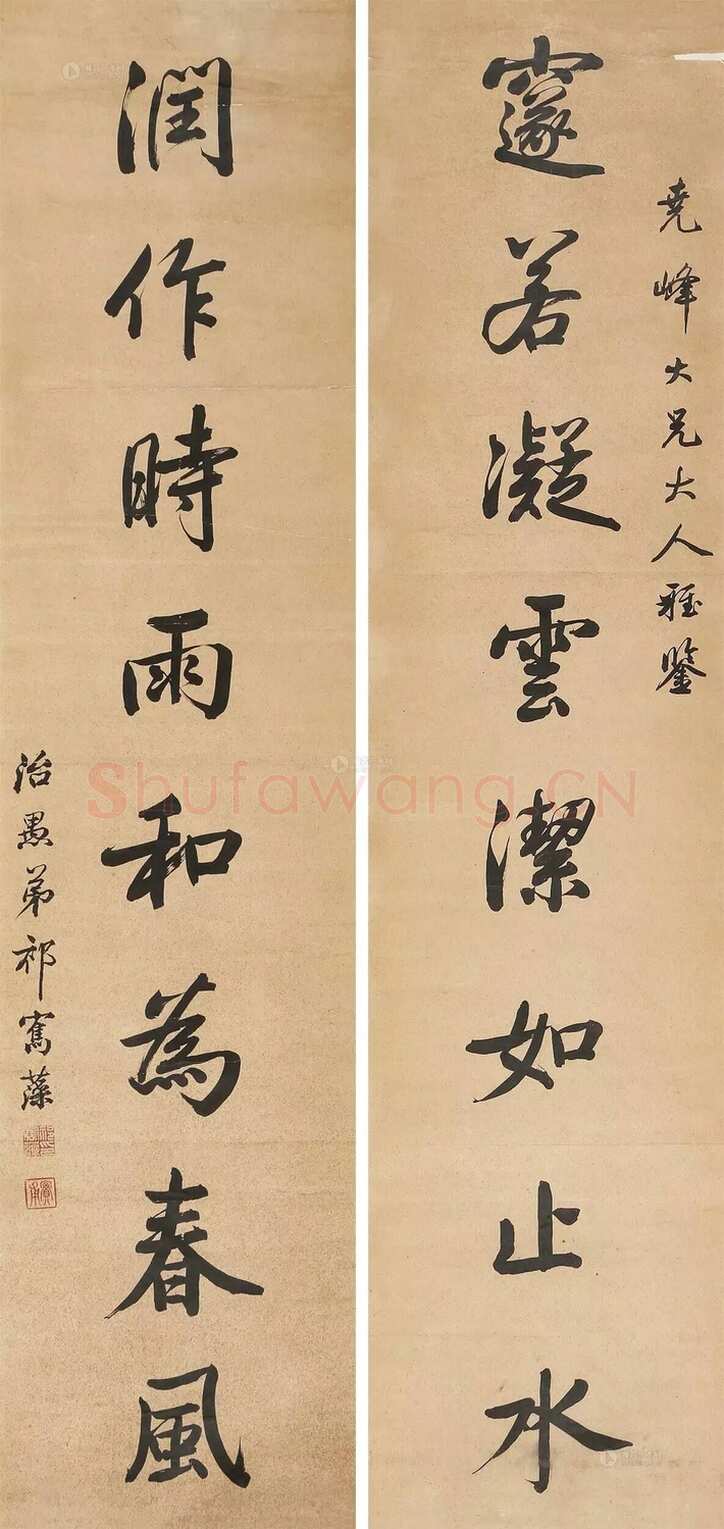 尧峰大兄大人雅鑒
邃若凝雲潔如止水
潤作時雨和為春風
治愚弟祁寯藻
Shufawang.CN